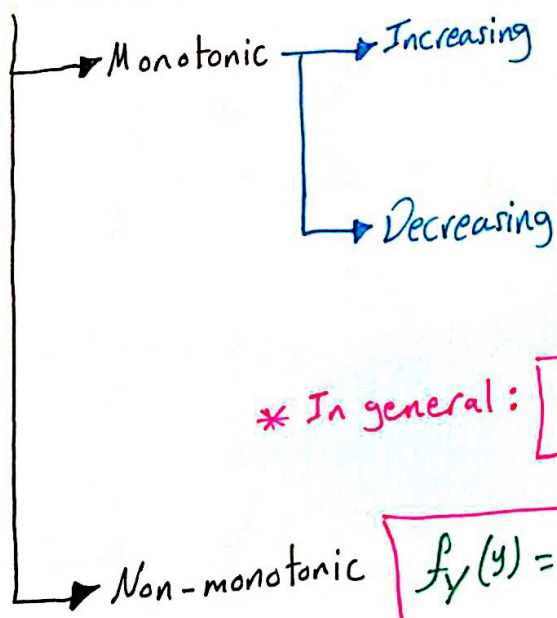 Monotonic
Increasing
Decreasing
* In general :
Non-monotonic f_Y(y) =